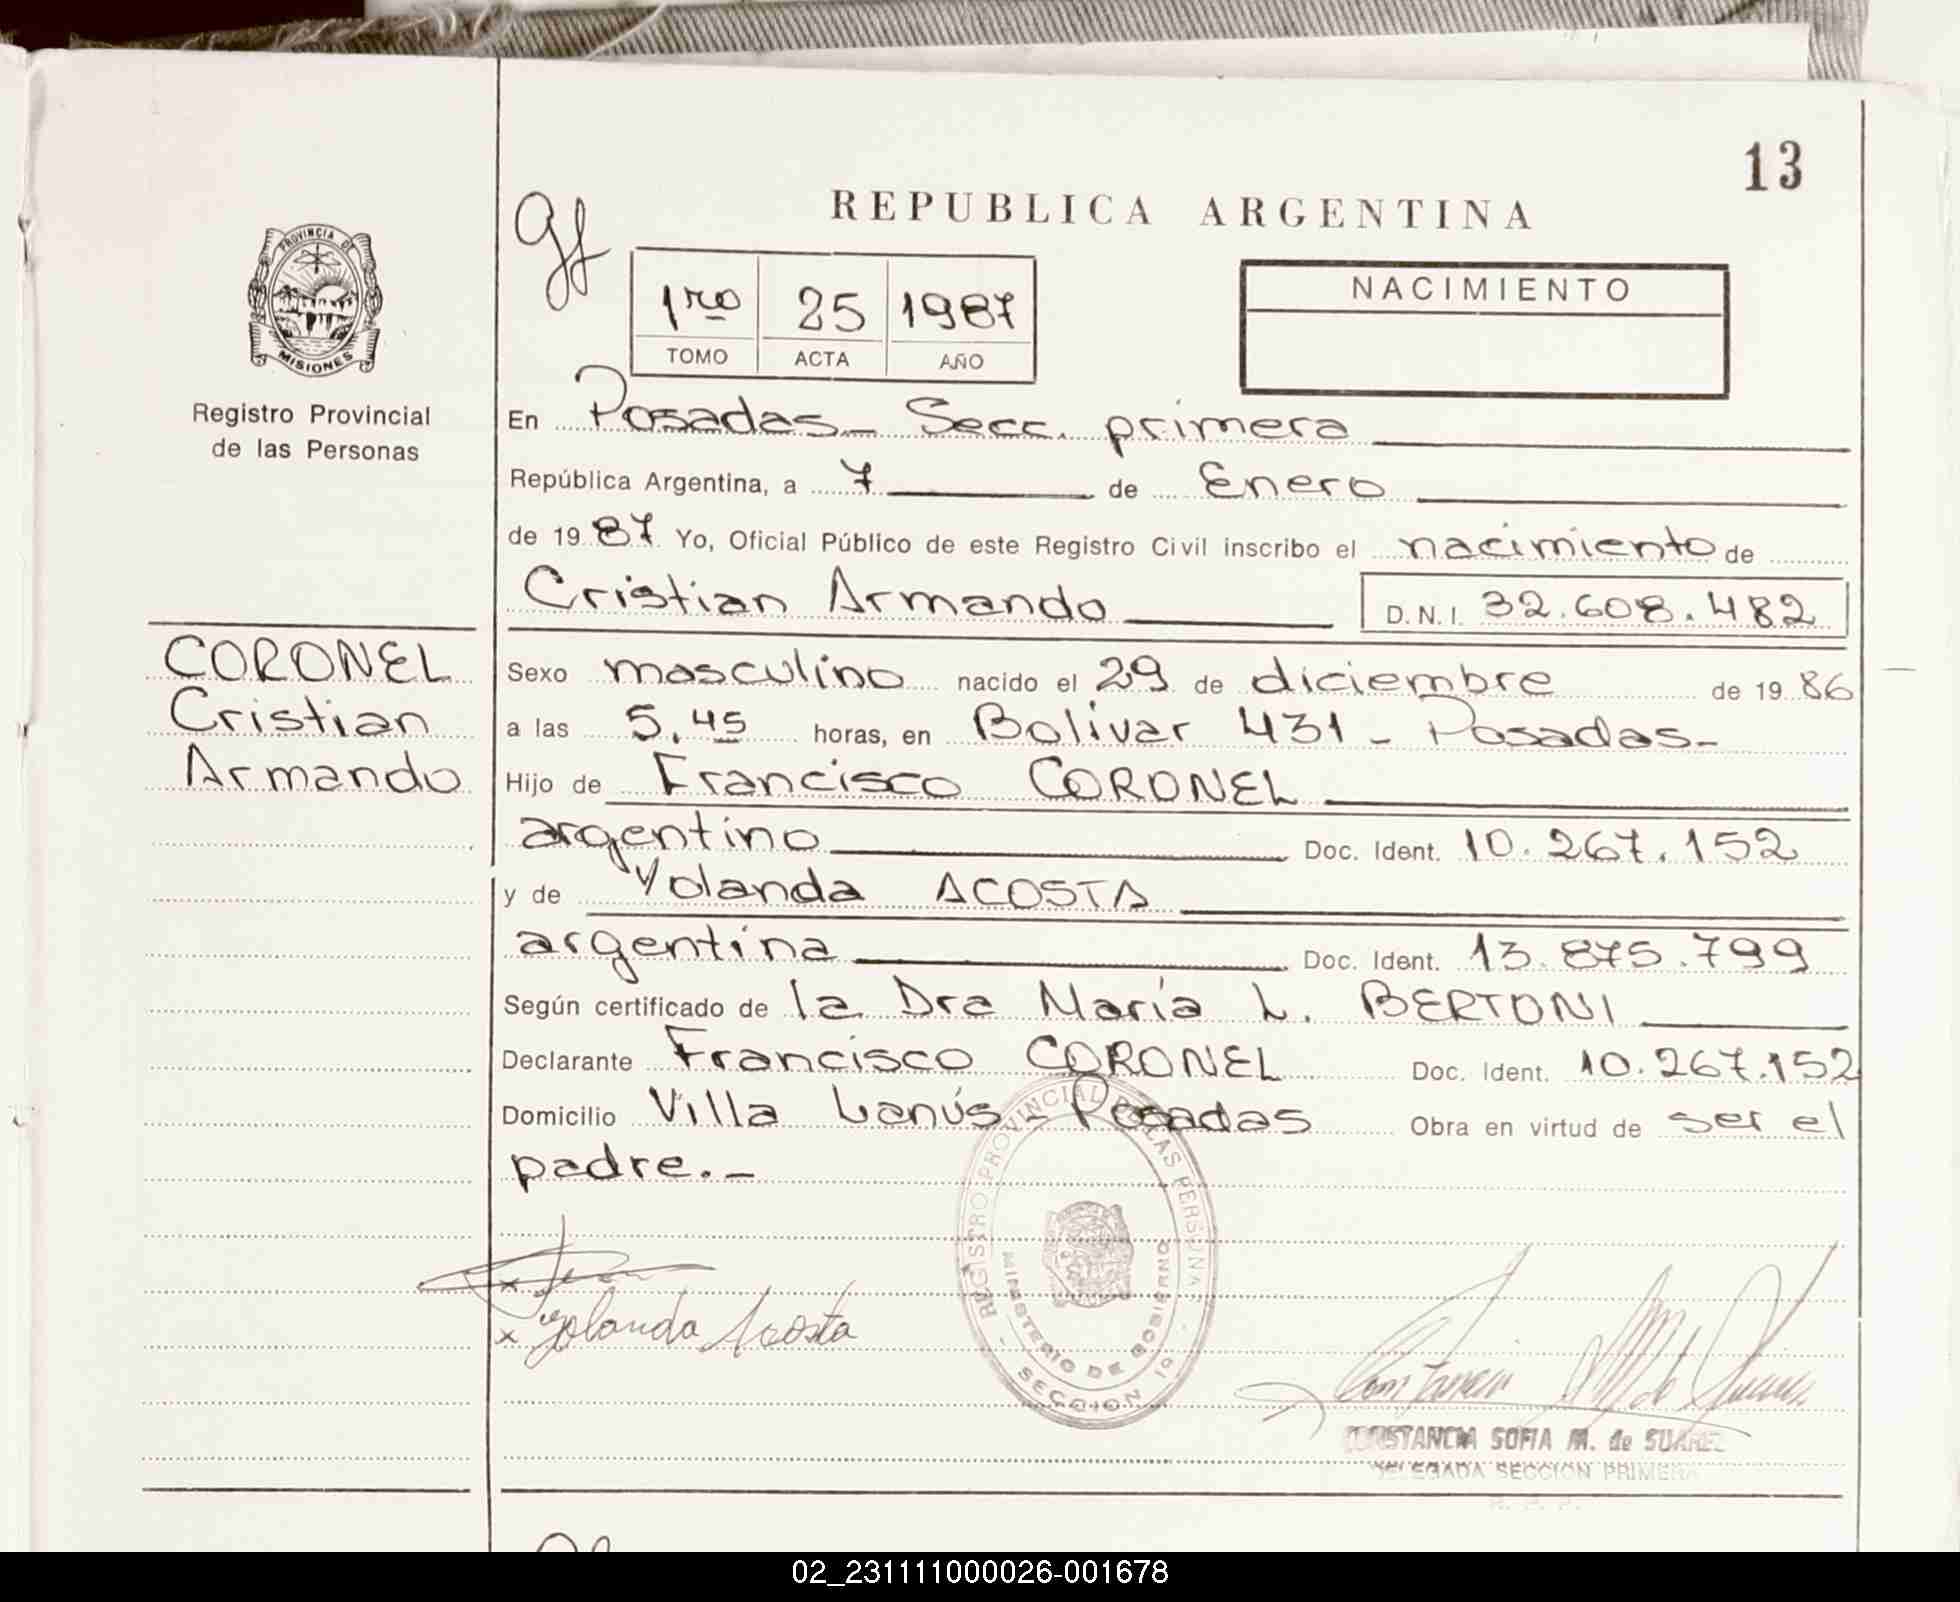 13
REPUBLICA ARGENTINA
PROVINCIA DE
MISIONES
Registro Provincial
de las Personas
1ro 25 1987
TOMO ACTA AÑO
NACIMIENTO
En Posadas - Secc. primera
República Argentina, a 7 de Enero
de 1987 Yo, Oficial Público de este Registro Civil inscribo el nacimiento de
Cristian Armando D.N.I. 32.608.482
CORONEL
Cristian
Armando
Sexo masculino nacido el 29 de diciembre de 1986
a las 5,45 horas, en Bolívar 431 - Posadas-
Hijo de Francisco CORONEL
argentino Doc. Ident. 10.267.152
y de Yolanda ACOSTA
argentina Doc. Ident. 13.875.799
Según certificado de la Dra María L. BERTONI
Declarante Francisco CORONEL Doc. Ident. 10.267.152
Domicilio Villa Lanús - Posadas Obra en virtud de ser el
padre.-
REGISTRO PROVINCIAL DE LAS PERSONAS
MINISTERIO DE GOBIERNO
SECCION 1a
x
x Yolanda Acosta
CONSTANCIA SOFIA M. de SUAREZ
DELEGADA SECCION PRIMERA
R. P. P.
02_231111000026-001678